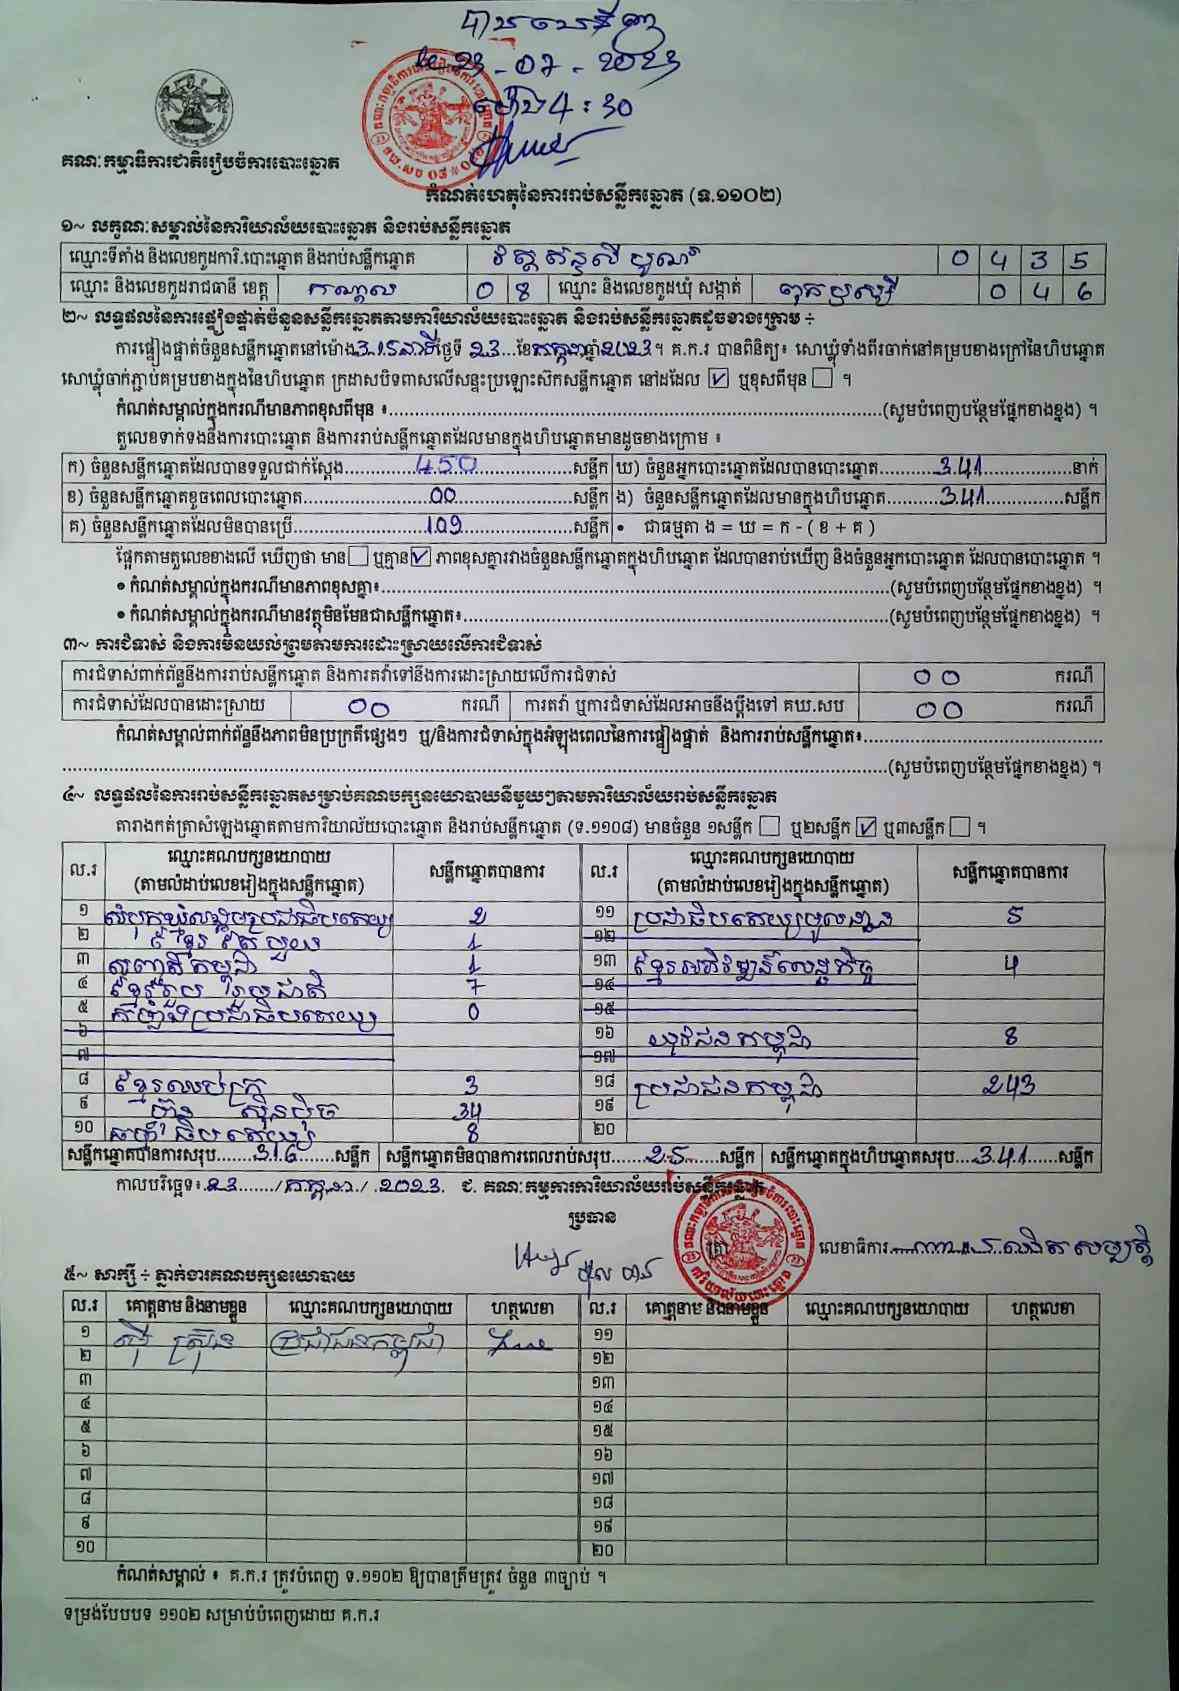 បានឃើញ
23-07-2023
ម៉ោង 4:30
គណៈកម្មាធិការជាតិរៀបចំការបោះឆ្នោត
កំណត់ហេតុនៃការរាប់សន្លឹកឆ្នោត (ទ.១១០២)
១~ លក្ខណៈសម្គាល់នៃការិយាល័យបោះឆ្នោត និងរាប់សន្លឹកឆ្នោត
ឈ្មោះទីតាំង និងលេខកូដការិ.បោះឆ្នោត និងរាប់សន្លឹកឆ្នោត វត្ត 0 4 3 5
ឈ្មោះ និងលេខកូដរាជធានី ខេត្ត កណ្តាល 0 8 ឈ្មោះ និងលេខកូដឃុំ សង្កាត់ ពុកឫស្សី 0 4 6
២~ លទ្ធផលនៃការផ្ទៀងផ្ទាត់ចំនួនសន្លឹកឆ្នោតតាមការិយាល័យបោះឆ្នោត និងរាប់សន្លឹកឆ្នោតដូចខាងក្រោម ÷
ការផ្ទៀងផ្ទាត់ចំនួនសន្លឹកឆ្នោតនៅម៉ោង 3:15នាទី ថ្ងៃទី 23 ខែកក្កដា ឆ្នាំ 2023។ គ.ក.រ បានពិនិត្យ៖ សោឃ្លុំទាំងពីរចាក់នៅគម្របខាងក្រៅនៃហិបឆ្នោត
សោឃ្លុំចាក់ភ្ជាប់គម្របខាងក្នុងនៃហិបឆ្នោត ក្រដាសបិទពាសលើសន្ទះប្រឡោះស៊កសន្លឹកឆ្នោត នៅដដែល ☑ ឬខុសពីមុន ☐ ។
កំណត់សម្គាល់ក្នុងករណីមានភាពខុសពីមុន ៖........(សូមបំពេញបន្ថែមផ្នែកខាងខ្នង) ។
តួលេខទាក់ទងនឹងការបោះឆ្នោត និងការរាប់សន្លឹកឆ្នោតដែលមានក្នុងហិបឆ្នោតមានដូចខាងក្រោម ៖
ក) ចំនួនសន្លឹកឆ្នោតដែលបានទទួលជាក់ស្តែង 450 សន្លឹក ឃ) ចំនួនអ្នកបោះឆ្នោតដែលបានបោះឆ្នោត 341 នាក់
ខ) ចំនួនសន្លឹកឆ្នោតខូចពេលបោះឆ្នោត 00 សន្លឹក ង) ចំនួនសន្លឹកឆ្នោតដែលមានក្នុងហិបឆ្នោត 341 សន្លឹក
គ) ចំនួនសន្លឹកឆ្នោតដែលមិនបានប្រើ 109 សន្លឹក • ជាធម្មតា ង = ឃ = ក - ( ខ + គ )
ផ្អែកតាមតួលេខខាងលើ ឃើញថា មាន ☐ ឬគ្មាន ☑ ភាពខុសគ្នារវាងចំនួនសន្លឹកឆ្នោតក្នុងហិបឆ្នោត ដែលបានរាប់ឃើញ និងចំនួនអ្នកបោះឆ្នោត ដែលបានបោះឆ្នោត ។
• កំណត់សម្គាល់ក្នុងករណីមានភាពខុសគ្នា៖........(សូមបំពេញបន្ថែមផ្នែកខាងខ្នង) ។
• កំណត់សម្គាល់ក្នុងករណីមានវត្ថុមិនមែនជាសន្លឹកឆ្នោត៖........(សូមបំពេញបន្ថែមផ្នែកខាងខ្នង) ។
៣~ ការជំទាស់ និងការមិនយល់ព្រមតាមការដោះស្រាយលើការជំទាស់
ការជំទាស់ពាក់ព័ន្ធនឹងការរាប់សន្លឹកឆ្នោត និងការតវ៉ាទៅនឹងការដោះស្រាយលើការជំទាស់ 00 ករណី
ការជំទាស់ដែលបានដោះស្រាយ 00 ករណី ការតវ៉ា ឬការជំទាស់ដែលអាចនឹងប្តឹងទៅ គឃ.សប 00 ករណី
កំណត់សម្គាល់ពាក់ព័ន្ធនឹងភាពមិនប្រក្រតីផ្សេងៗ ឬ/និងការជំទាស់ក្នុងអំឡុងពេលនៃការផ្ទៀងផ្ទាត់ និងការរាប់សន្លឹកឆ្នោត៖........
........(សូមបំពេញបន្ថែមផ្នែកខាងខ្នង) ។
៤~ លទ្ធផលនៃការរាប់សន្លឹកឆ្នោតសម្រាប់គណបក្សនយោបាយនីមួយៗតាមការិយាល័យរាប់សន្លឹកឆ្នោត
តារាងកត់ត្រាសំឡេងឆ្នោតតាមការិយាល័យបោះឆ្នោត និងរាប់សន្លឹកឆ្នោត (ទ.១១០៨) មានចំនួន ១សន្លឹក ☐ ឬ២សន្លឹក ☑ ឬ៣សន្លឹក ☐ ។
ល.រ ឈ្មោះគណបក្សនយោបាយ (តាមលំដាប់លេខរៀងក្នុងសន្លឹកឆ្នោត) សន្លឹកឆ្នោតបានការ ល.រ ឈ្មោះគណបក្សនយោបាយ (តាមលំដាប់លេខរៀងក្នុងសន្លឹកឆ្នោត) សន្លឹកឆ្នោតបានការ
១ សំបុកឃ្មុំសង្គមប្រជាធិបតេយ្យ 2 ១១ ប្រជាធិបតេយ្យមូលដ្ឋាន 5
២ ខ្មែរតែមួយ 1 ១២
៣ សញ្ជាតិកម្ពុជា 1 ១៣ ខ្មែរអភិវឌ្ឍន៍សេដ្ឋកិច្ច 4
៤ ខ្មែររួបរួមជាតិ 7 ១៤
៥ កម្លាំងប្រជាធិបតេយ្យ 0 ១៥
៦ ១៦ យុវជនកម្ពុជា 8
៧ ១៧
៨ ខ្មែរឈប់ក្រ 3 ១៨ ប្រជាជនកម្ពុជា 243
៩ ហ៊្វុនស៊ិនប៉ិច 34 ១៩
១០ ធម្មាធិបតេយ្យ 8 ២០
សន្លឹកឆ្នោតបានការសរុប 316 សន្លឹក សន្លឹកឆ្នោតមិនបានការពេលរាប់សរុប 25 សន្លឹក សន្លឹកឆ្នោតក្នុងហិបឆ្នោតសរុប 341 សន្លឹក
កាលបរិច្ឆេទ៖ 23 / កក្កដា / 2023 ជ. គណៈកម្មការការិយាល័យរាប់សន្លឹកឆ្នោត
ប្រធាន
(ត្រា) លេខាធិការ
៥~ សាក្សី ÷ ភ្នាក់ងារគណបក្សនយោបាយ
ល.រ គោត្តនាម និងនាមខ្លួន ឈ្មោះគណបក្សនយោបាយ ហត្ថលេខា ល.រ គោត្តនាម និងនាមខ្លួន ឈ្មោះគណបក្សនយោបាយ ហត្ថលេខា
១ ប្រជាជនកម្ពុជា ១១
២ ១២
៣ ១៣
៤ ១៤
៥ ១៥
៦ ១៦
៧ ១៧
៨ ១៨
៩ ១៩
១០ ២០
កំណត់សម្គាល់ ៖ គ.ក.រ ត្រូវបំពេញ ទ.១១០២ ឱ្យបានត្រឹមត្រូវ ចំនួន ៣ច្បាប់ ។
ទម្រង់បែបបទ ១១០២ សម្រាប់បំពេញដោយ គ.ក.រ